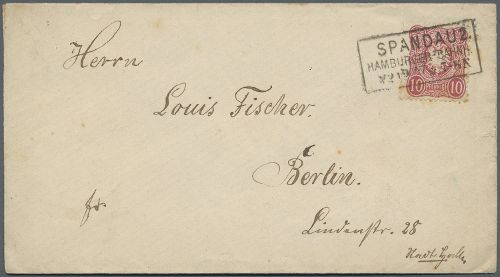 SPANDAU 2
HAMBURGER BAHNH.
10 PFENNIG 10
Herrn
Louis Fischer.
Berlin.
fr.
Lindenstr. 28